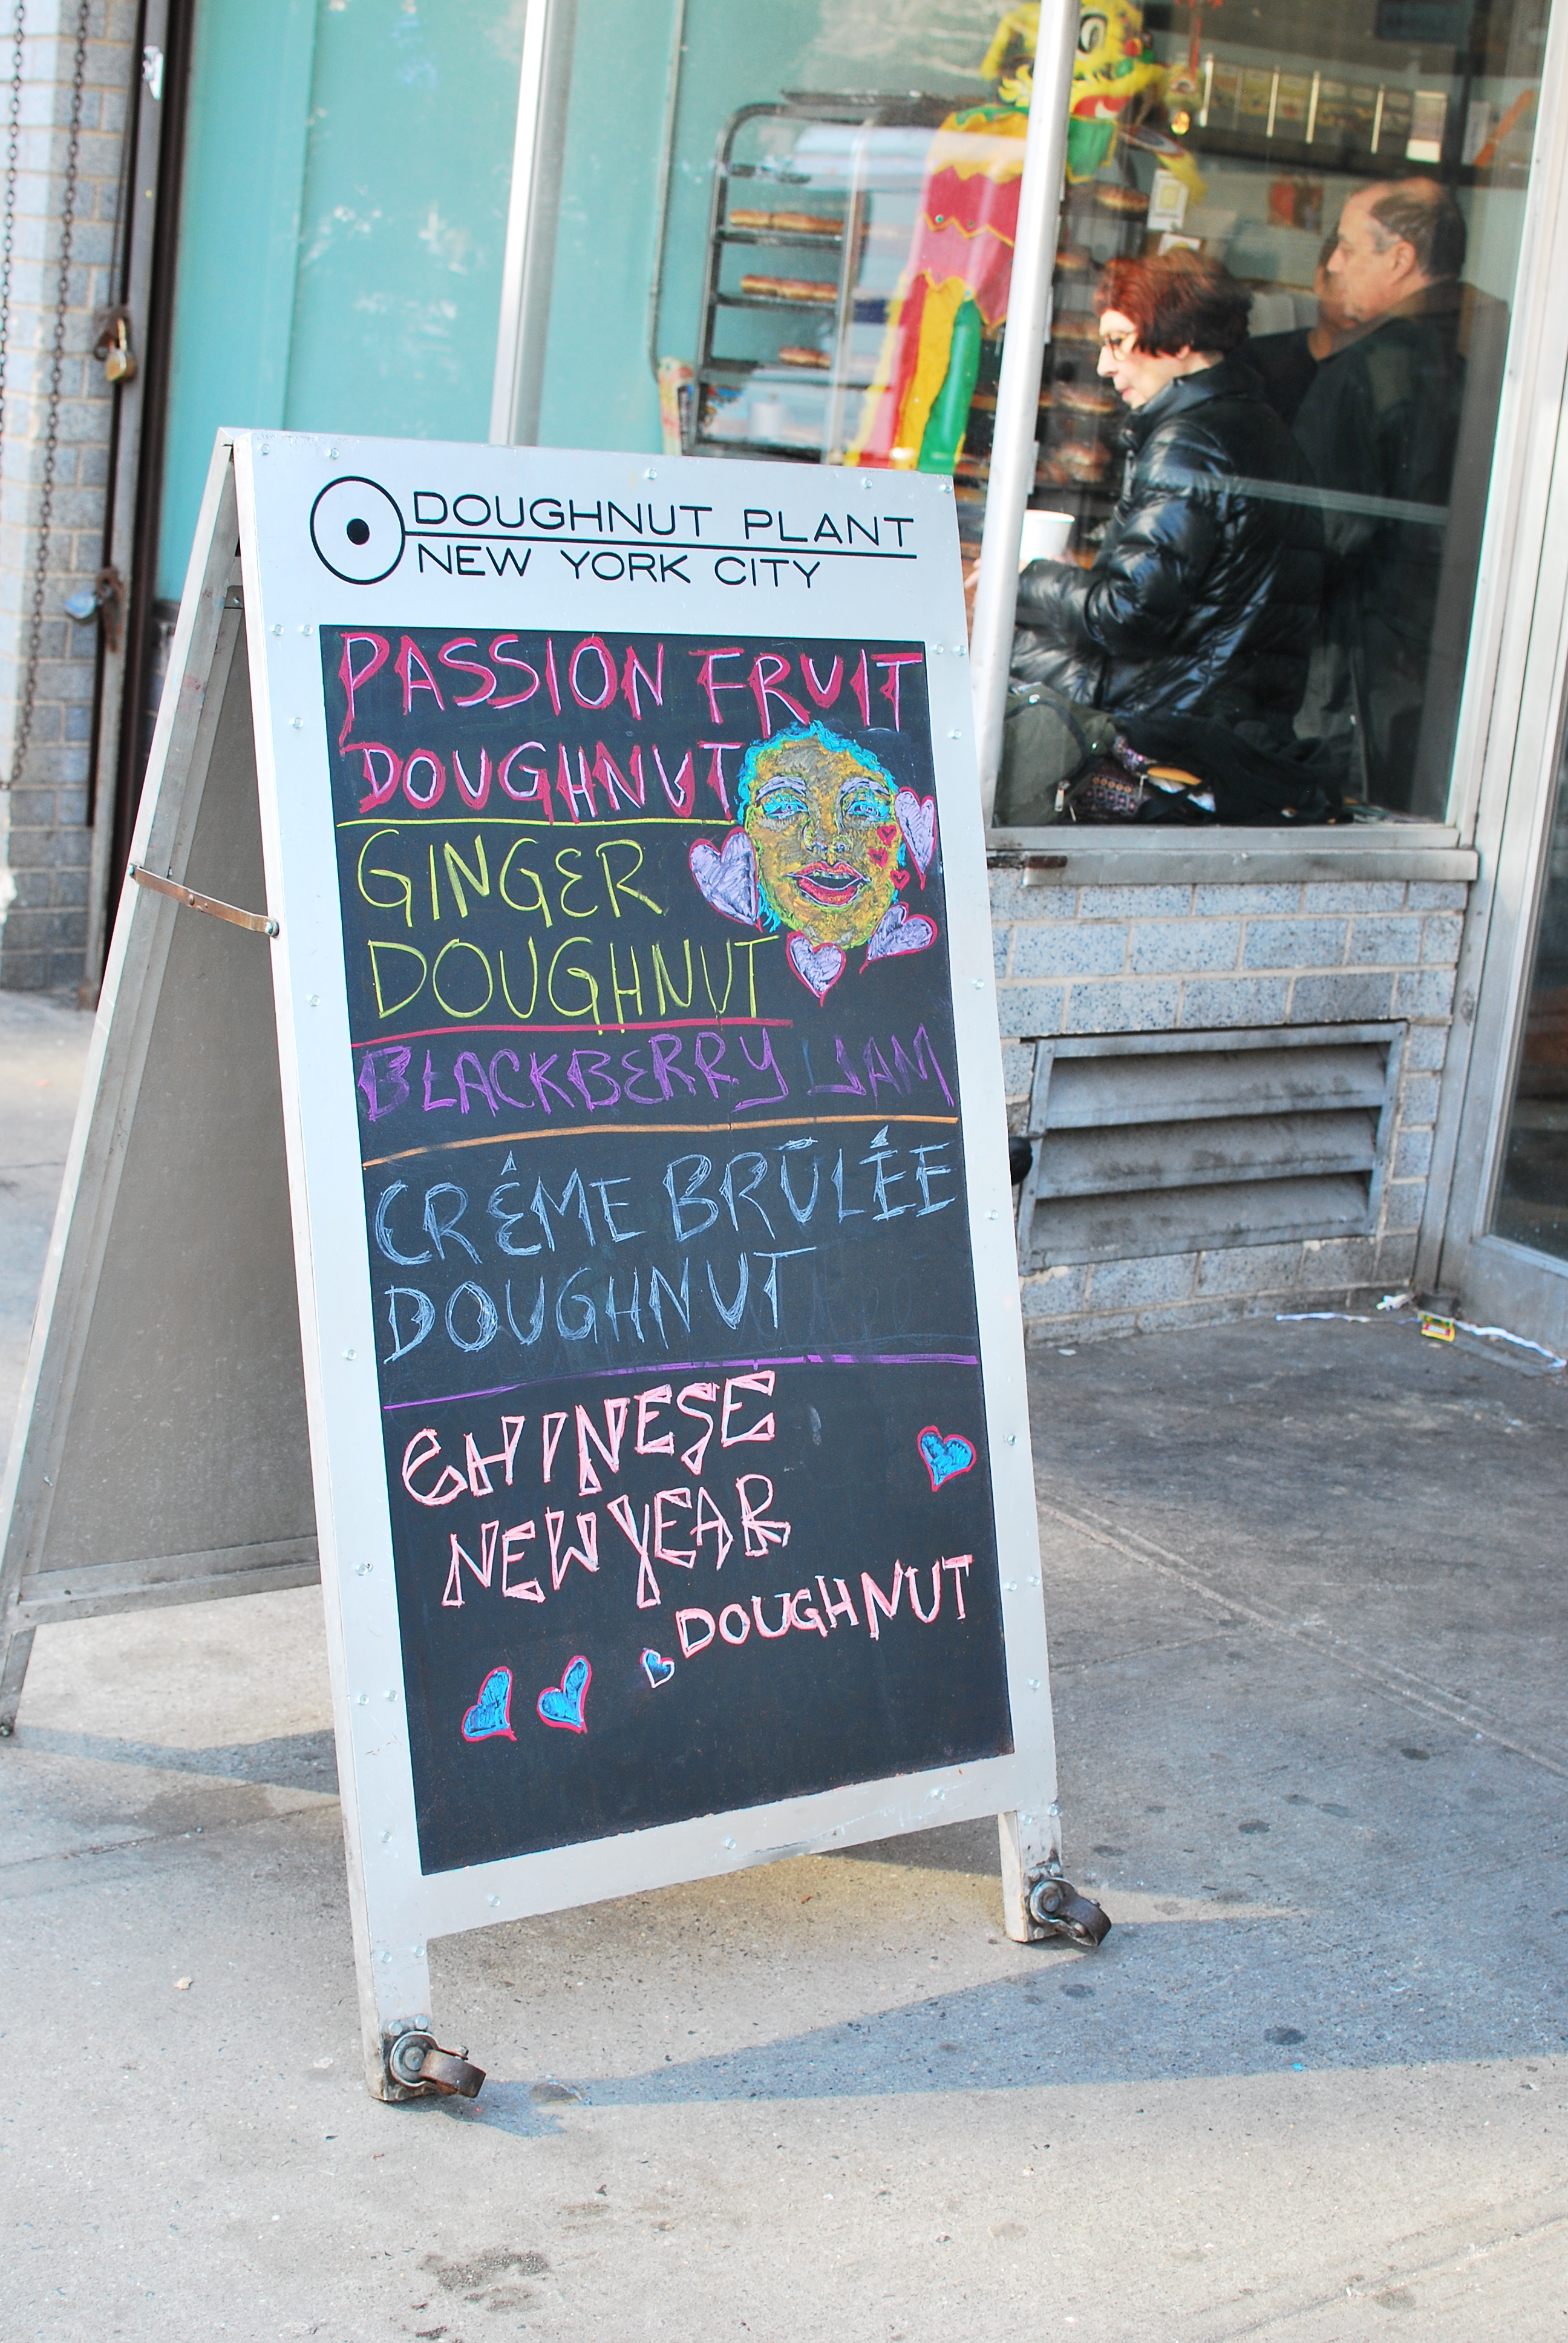 DOUGHNUT PLANT
NEW YORK CITY
PASSION FRUIT
DOUGHNUT
GINGER
DOUGHNUT
BLACKBERRY JAM
CRÊME BRŪLÊE
DOUGHNUT
CHINESE
NEW YEAR
DOUGHNUT